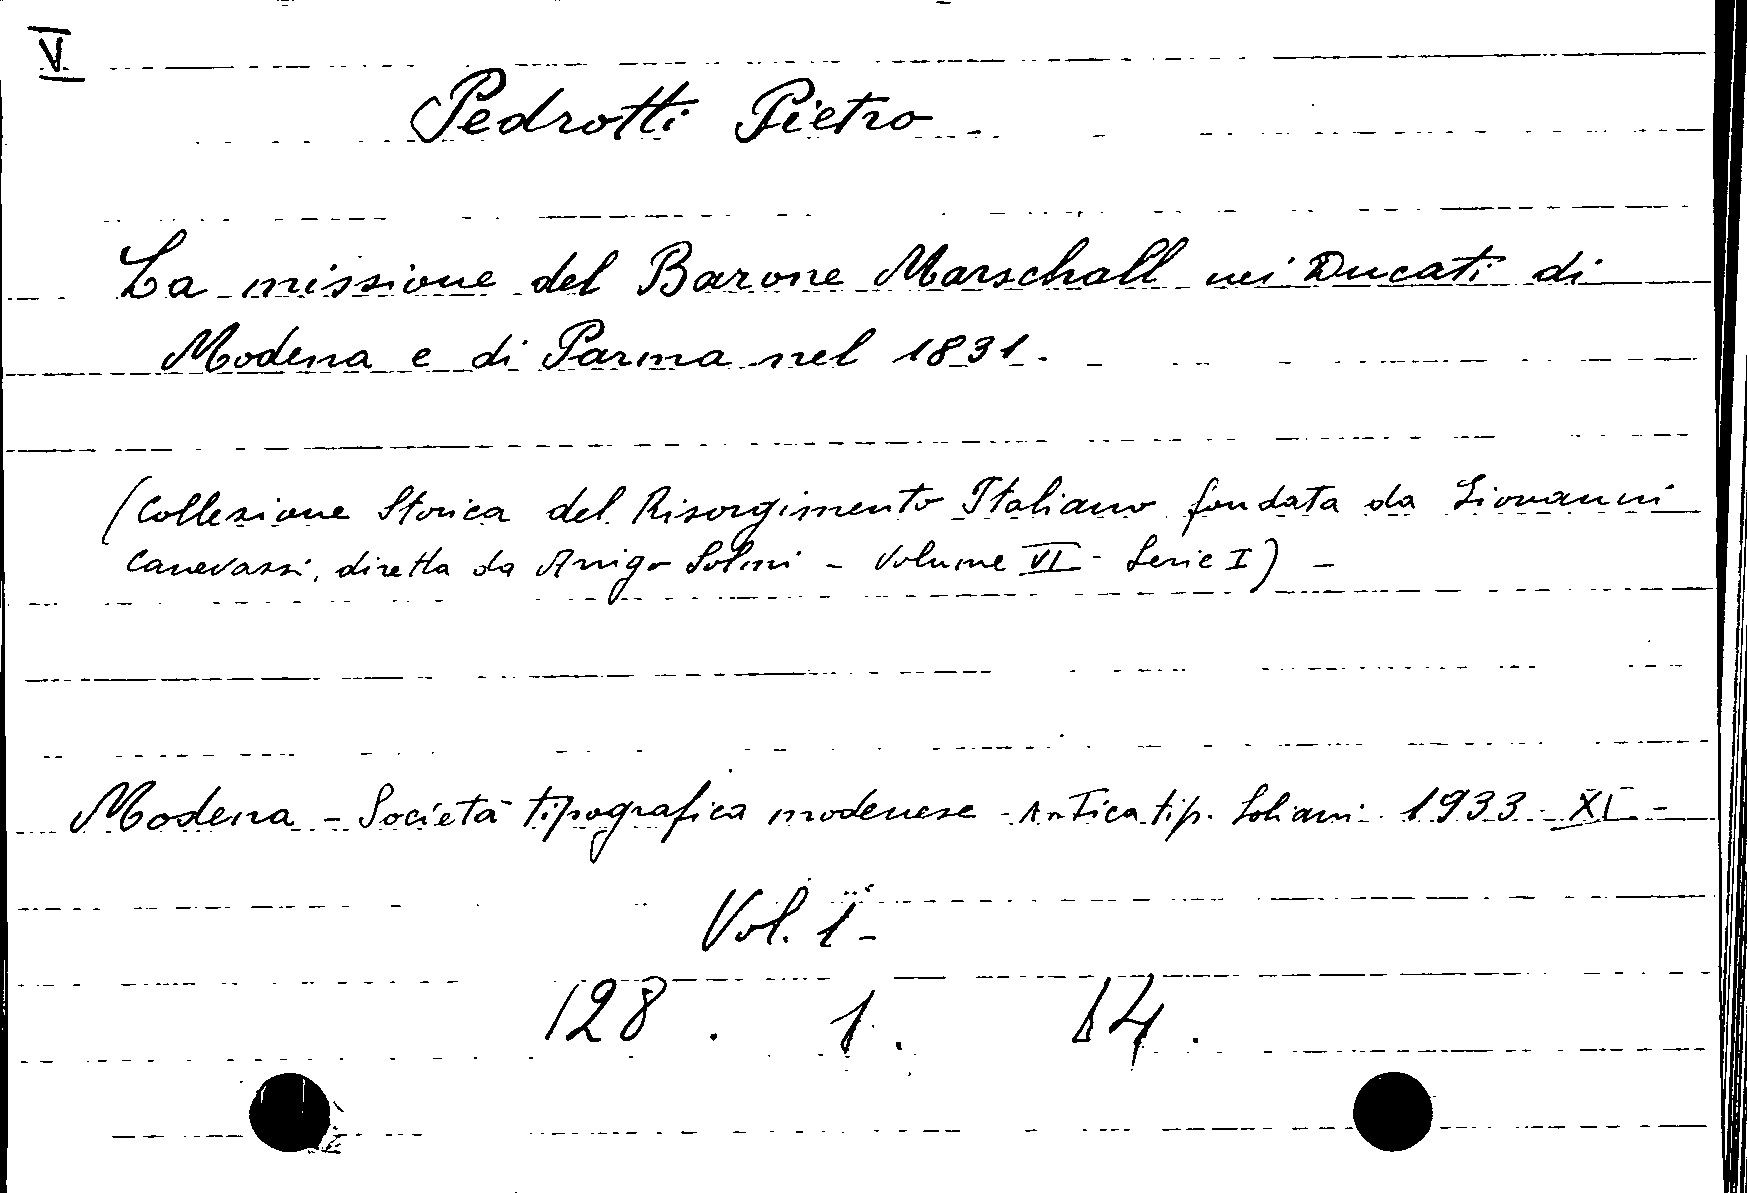 V.
Pedrotti Pietro
La missione del Barone Marschall nei Ducati di
Modena e di Parma nel 1831.
(Collezione Storica del Risorgimento Italiano fondata da Giovanni
Canevazzi, diretta da Arrigo Solmi - Volume VI - Serie I) -
Modena - Società tipografica modenese - Antica tip. Soliani - 1933 - XI -
Vol. 1 -
128 . 1 . 14 .